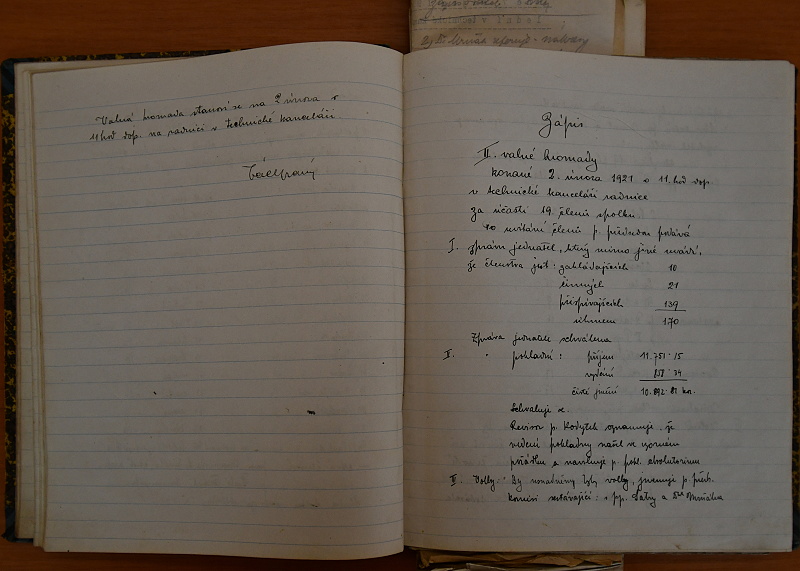 Valná hromada stanoví se na 2 února v
11 hod dop. na radnici v technické kanceláři
Zápis
II. valné hromady
konané 2. února 1921 o 11. hod dop.
v technické kanceláři radnice
za účasti 19. členů spolku.
Po uvítání členů p. předseda podává
I. zprávu jednatel, který mimo jiné uvádí,
že členstva jest: zakládajících 10
činných 21
přispívajících 139
úhrnem 170
Zpráva jednatele schválena
II. " pokladní: příjem 11.751·15
vydání 858·34
čisté jmění 10.892·81 kor.
Schvaluje se.
Revisor p. oznamuje, že
vedení pokladny našel ve vzorném
pořádku a navrhuje p. pokl. absolutorium
III. Volby: By usnadněny byly volby, jmenuje p. před.
komisi sestávající: z pp. a